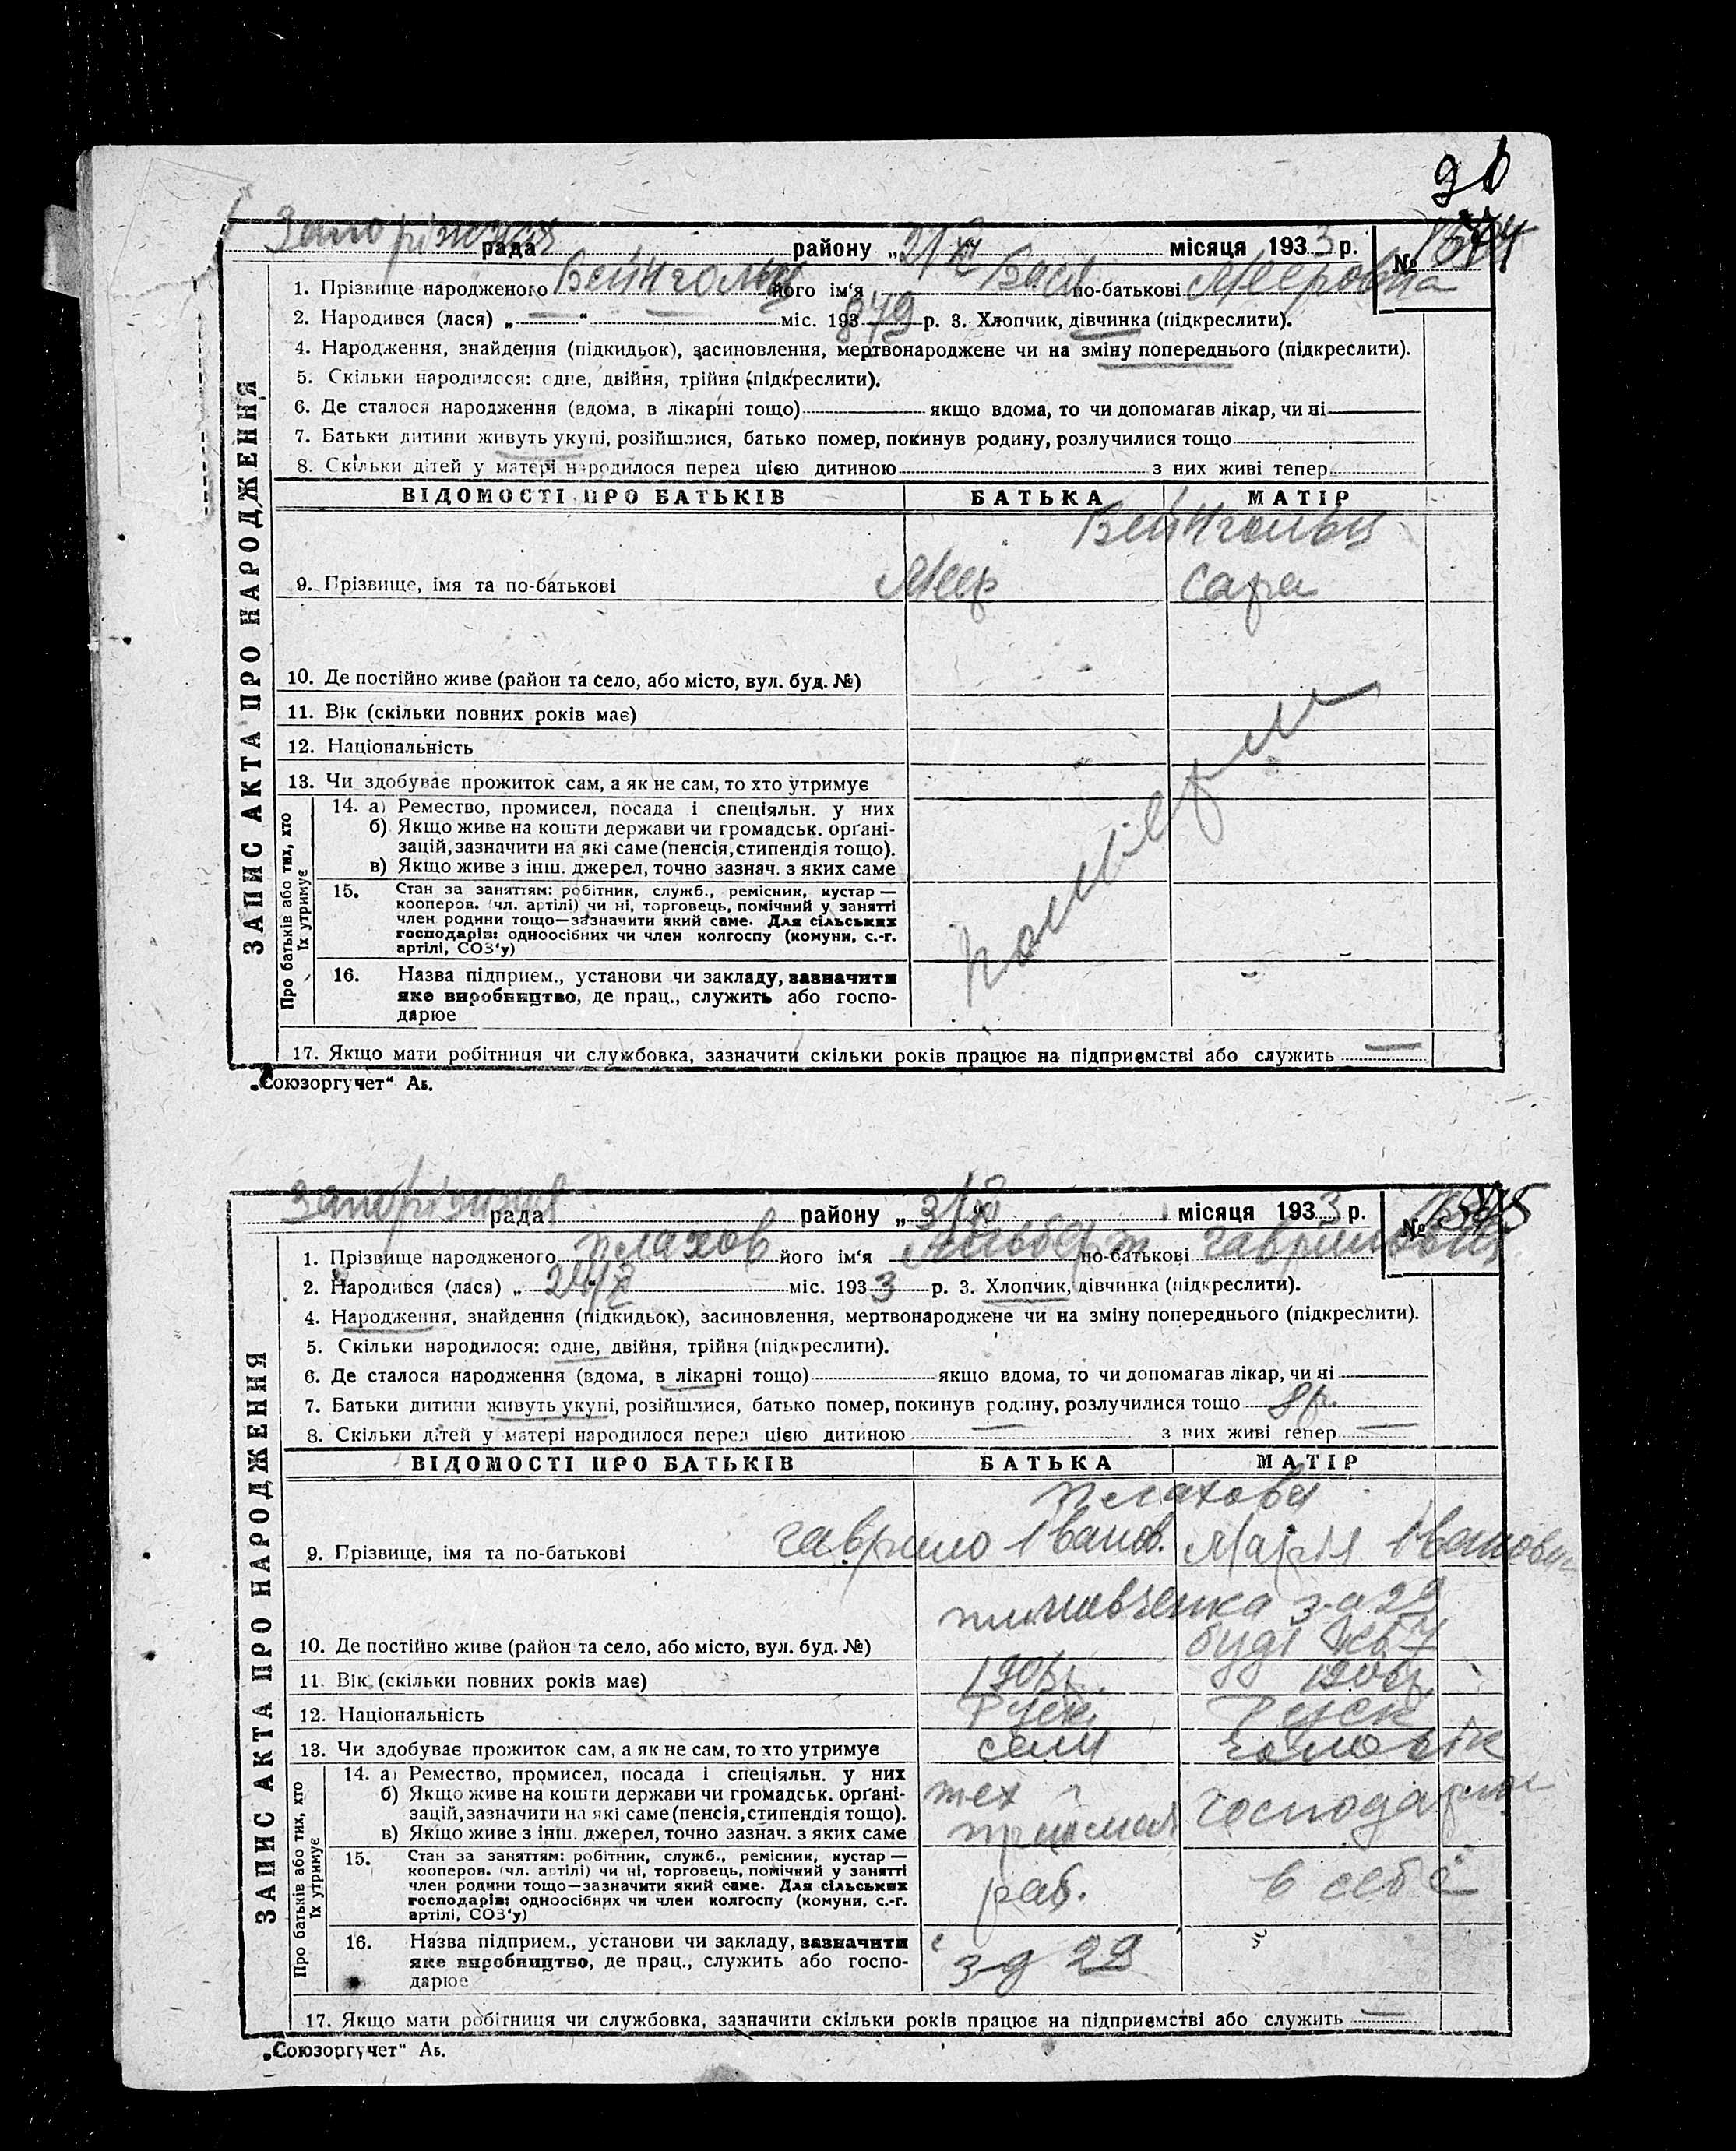 90
Запоріжжя рада району „21/XII" місяця 1933 р. №
1. Прізвище народженого Вейнгольц його ім'я Бася по-батькові Мееровна
2. Народився (лася) „ “ міс. 193 879 р. 3. Хлопчик, дівчинка (підкреслити).
4. Народження, знайдення (підкидьок), засиновлення, мертвонароджене чи на зміну попереднього (підкреслити).
5. Скільки народилося: одне, двійня, трійня (підкреслити).
6. Де сталося народження (вдома, в лікарні тощо) якщо вдома, то чи допомагав лікар, чи ні
7. Батьки дитини живуть укупі, розійшлися, батько помер, покинув родину, розлучилися тощо
8. Скільки дітей у матері народилося перед цією дитиною з них живі тепер
ЗАПИС АКТА ПРО НАРОДЖЕННЯ
ВІДОМОСТІ ПРО БАТЬКІВ БАТЬКА МАТІР
Вейнгольц
9. Прізвище, імя та по-батькові Меер Сара
10. Де постійно живе (район та село, або місто, вул. буд. №)
11. Вік (скільки повних років має)
12. Національність
13. Чи здобуває прожиток сам, а як не сам, то хто утримує
Про батьків або тих, хто їх утримує
14. а) Ремество, промисел, посада і спеціяльн. у них
б) Якщо живе на кошти держави чи громадськ. орґані-
зацій, зазначити на які саме (пенсія, стипендія тощо).
в) Якщо живе з інш. джерел, точно зазнач. з яких саме
померли
15. Стан за заняттям: робітник, служб., ремісник, кустар —
кооперов. (чл. артілі) чи ні, торговець, помічний у занятті
член родини тощо—зазначити який саме. Для сільських
господарів: одноосібних чи член колгоспу (комуни, с.-г.
артілі, СОЗ'у)
16. Назва підприєм., установи чи закладу, зазначити
яке виробництво, де прац., служить або госпо-
дарює
17. Якщо мати робітниця чи службовка, зазначити скільки років працює на підприємстві або служить
„Союзоргучет“ Аь.
Запоріжжя рада району „31/XII" місяця 1933 р. №
1. Прізвище народженого Плахов його ім'я Альберт по-батькові Гаврилович
2. Народився (лася) „ 24/X міс. 1933 р. 3. Хлопчик, дівчинка (підкреслити).
4. Народження, знайдення (підкидьок), засиновлення, мертвонароджене чи на зміну попереднього (підкреслити).
5. Скільки народилося: одне, двійня, трійня (підкреслити).
6. Де сталося народження (вдома, в лікарні тощо) якщо вдома, то чи допомагав лікар, чи ні
7. Батьки дитини живуть укупі, розійшлися, батько помер, покинув родину, розлучилися тощо 8р.
8. Скільки дітей у матері народилося перед цією дитиною з них живі тепер
ЗАПИС АКТА ПРО НАРОДЖЕННЯ
ВІДОМОСТІ ПРО БАТЬКІВ БАТЬКА МАТІР
Плахови
9. Прізвище, імя та по-батькові Гаврило Іванов. Марія Івановна
з-д 29
10. Де постійно живе (район та село, або місто, вул. буд. №) буд 1 кв 4
11. Вік (скільки повних років має) 1906р.
12. Національність Руск. Руск
13. Чи здобуває прожиток сам, а як не сам, то хто утримує сам чоловік
Про батьків або тих, хто їх утримує
14. а) Ремество, промисел, посада і спеціяльн. у них
б) Якщо живе на кошти держави чи громадськ. орґані-
зацій, зазначити на які саме (пенсія, стипендія тощо).
в) Якщо живе з інш. джерел, точно зазнач. з яких саме
тех прийомки господарює
15. Стан за заняттям: робітник, служб., ремісник, кустар —
кооперов. (чл. артілі) чи ні, торговець, помічний у занятті
член родини тощо—зазначити який саме. Для сільських
господарів: одноосібних чи член колгоспу (комуни, с.-г.
артілі, СОЗ'у)
раб. в себе
16. Назва підприєм., установи чи закладу, зазначити
яке виробництво, де прац., служить або госпо-
дарює
з-д 29
17. Якщо мати робітниця чи службовка, зазначити скільки років працює на підприємстві або служить
„Союзоргучет“ Аь.